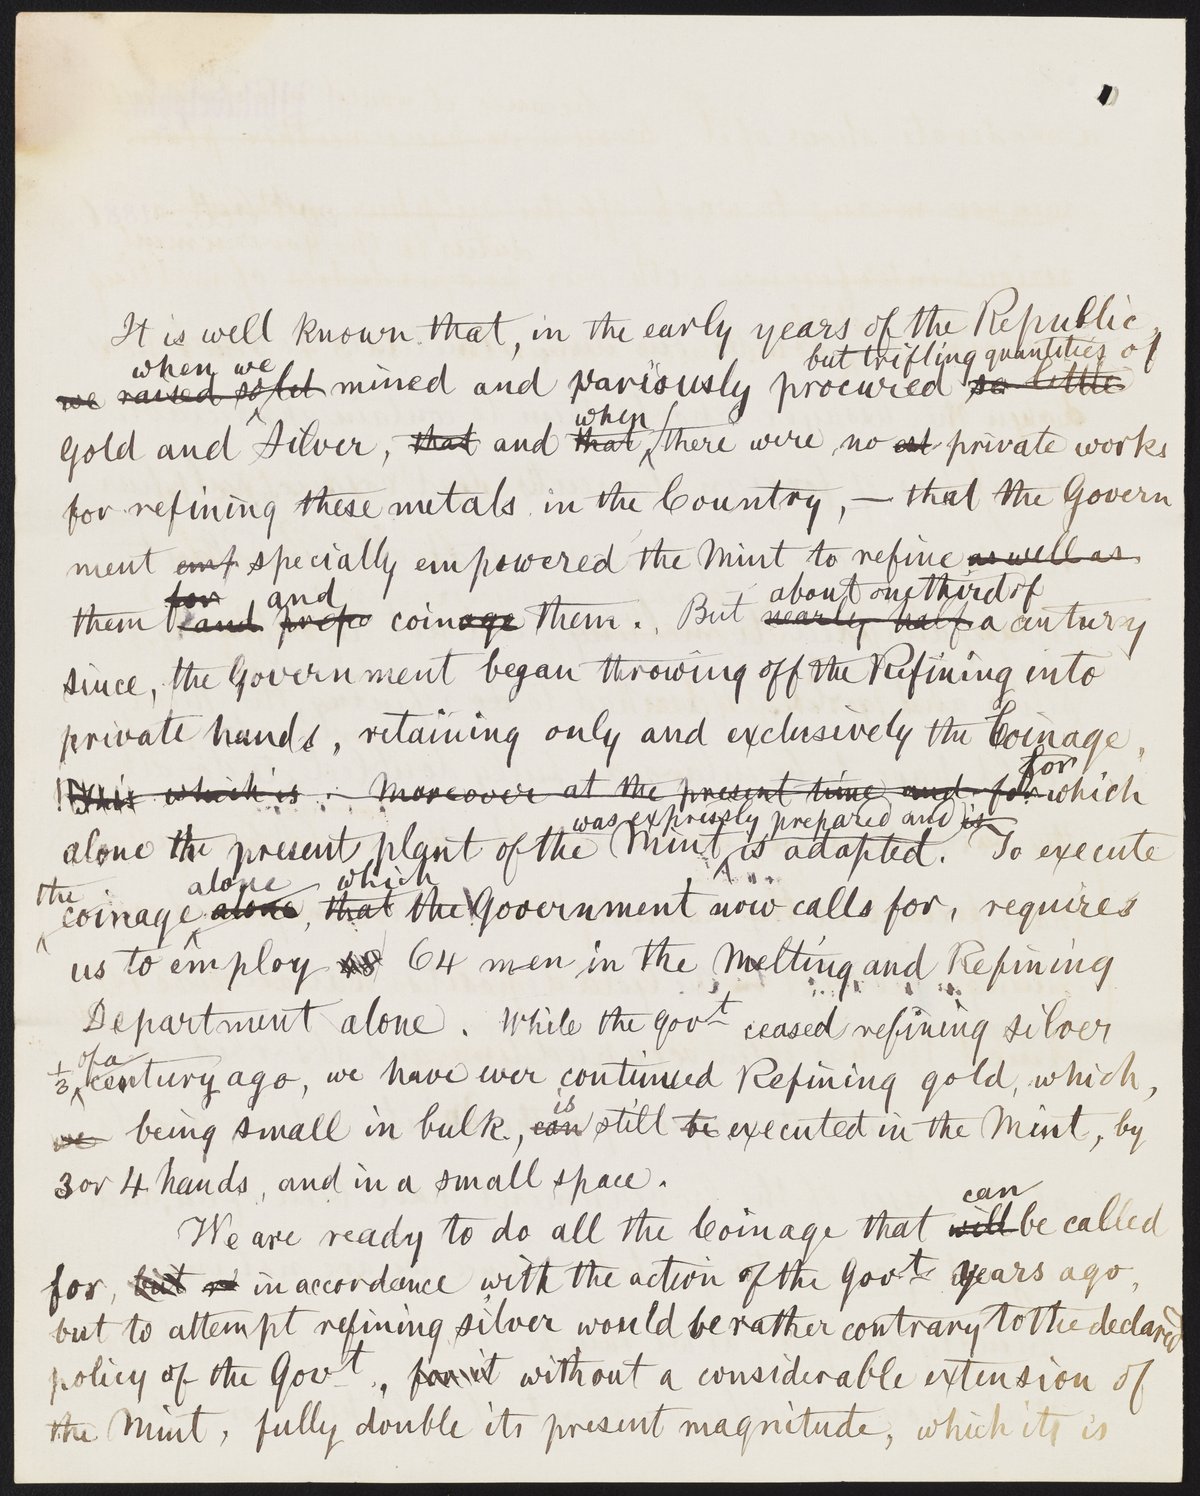 It is well known that, in the early years of the Republic,
when we but trifling quantities of
we raised so let mined and variously procured so little
gold and silver, that and that when there were no private works
for refining these metals in the Country, — that the Govern
ment emp specially empowered the Mint to refine as well as
for and about one third of
them and prepa coinage them. But nearly half a century
since, the Government began throwing off the Refining into
private hands, retaining only and exclusively the Coinage,
for
This which is. Moreover at the present time and for which
was expressly prepared and is
alone the present plant of the Mint is adapted. To execute
the alone which
coinage alone, that the Government now calls for, requires
us to employ 48 64 men in the Melting and Refining
Department alone. While the Govt ceased refining silver
of a
1/3 century ago, we have ever continued Refining gold, which,
is
we being small in bulk, can still be executed in the Mint, by
3 or 4 hands, and in a small space.
can
We are ready to do all the Coinage that will be called
for, but in accordance with the action of the Govt years ago,
but to attempt refining silver would be rather contrary to the declared
policy of the Govt, for it without a considerable extension of
the Mint, fully double its present magnitude, which its is